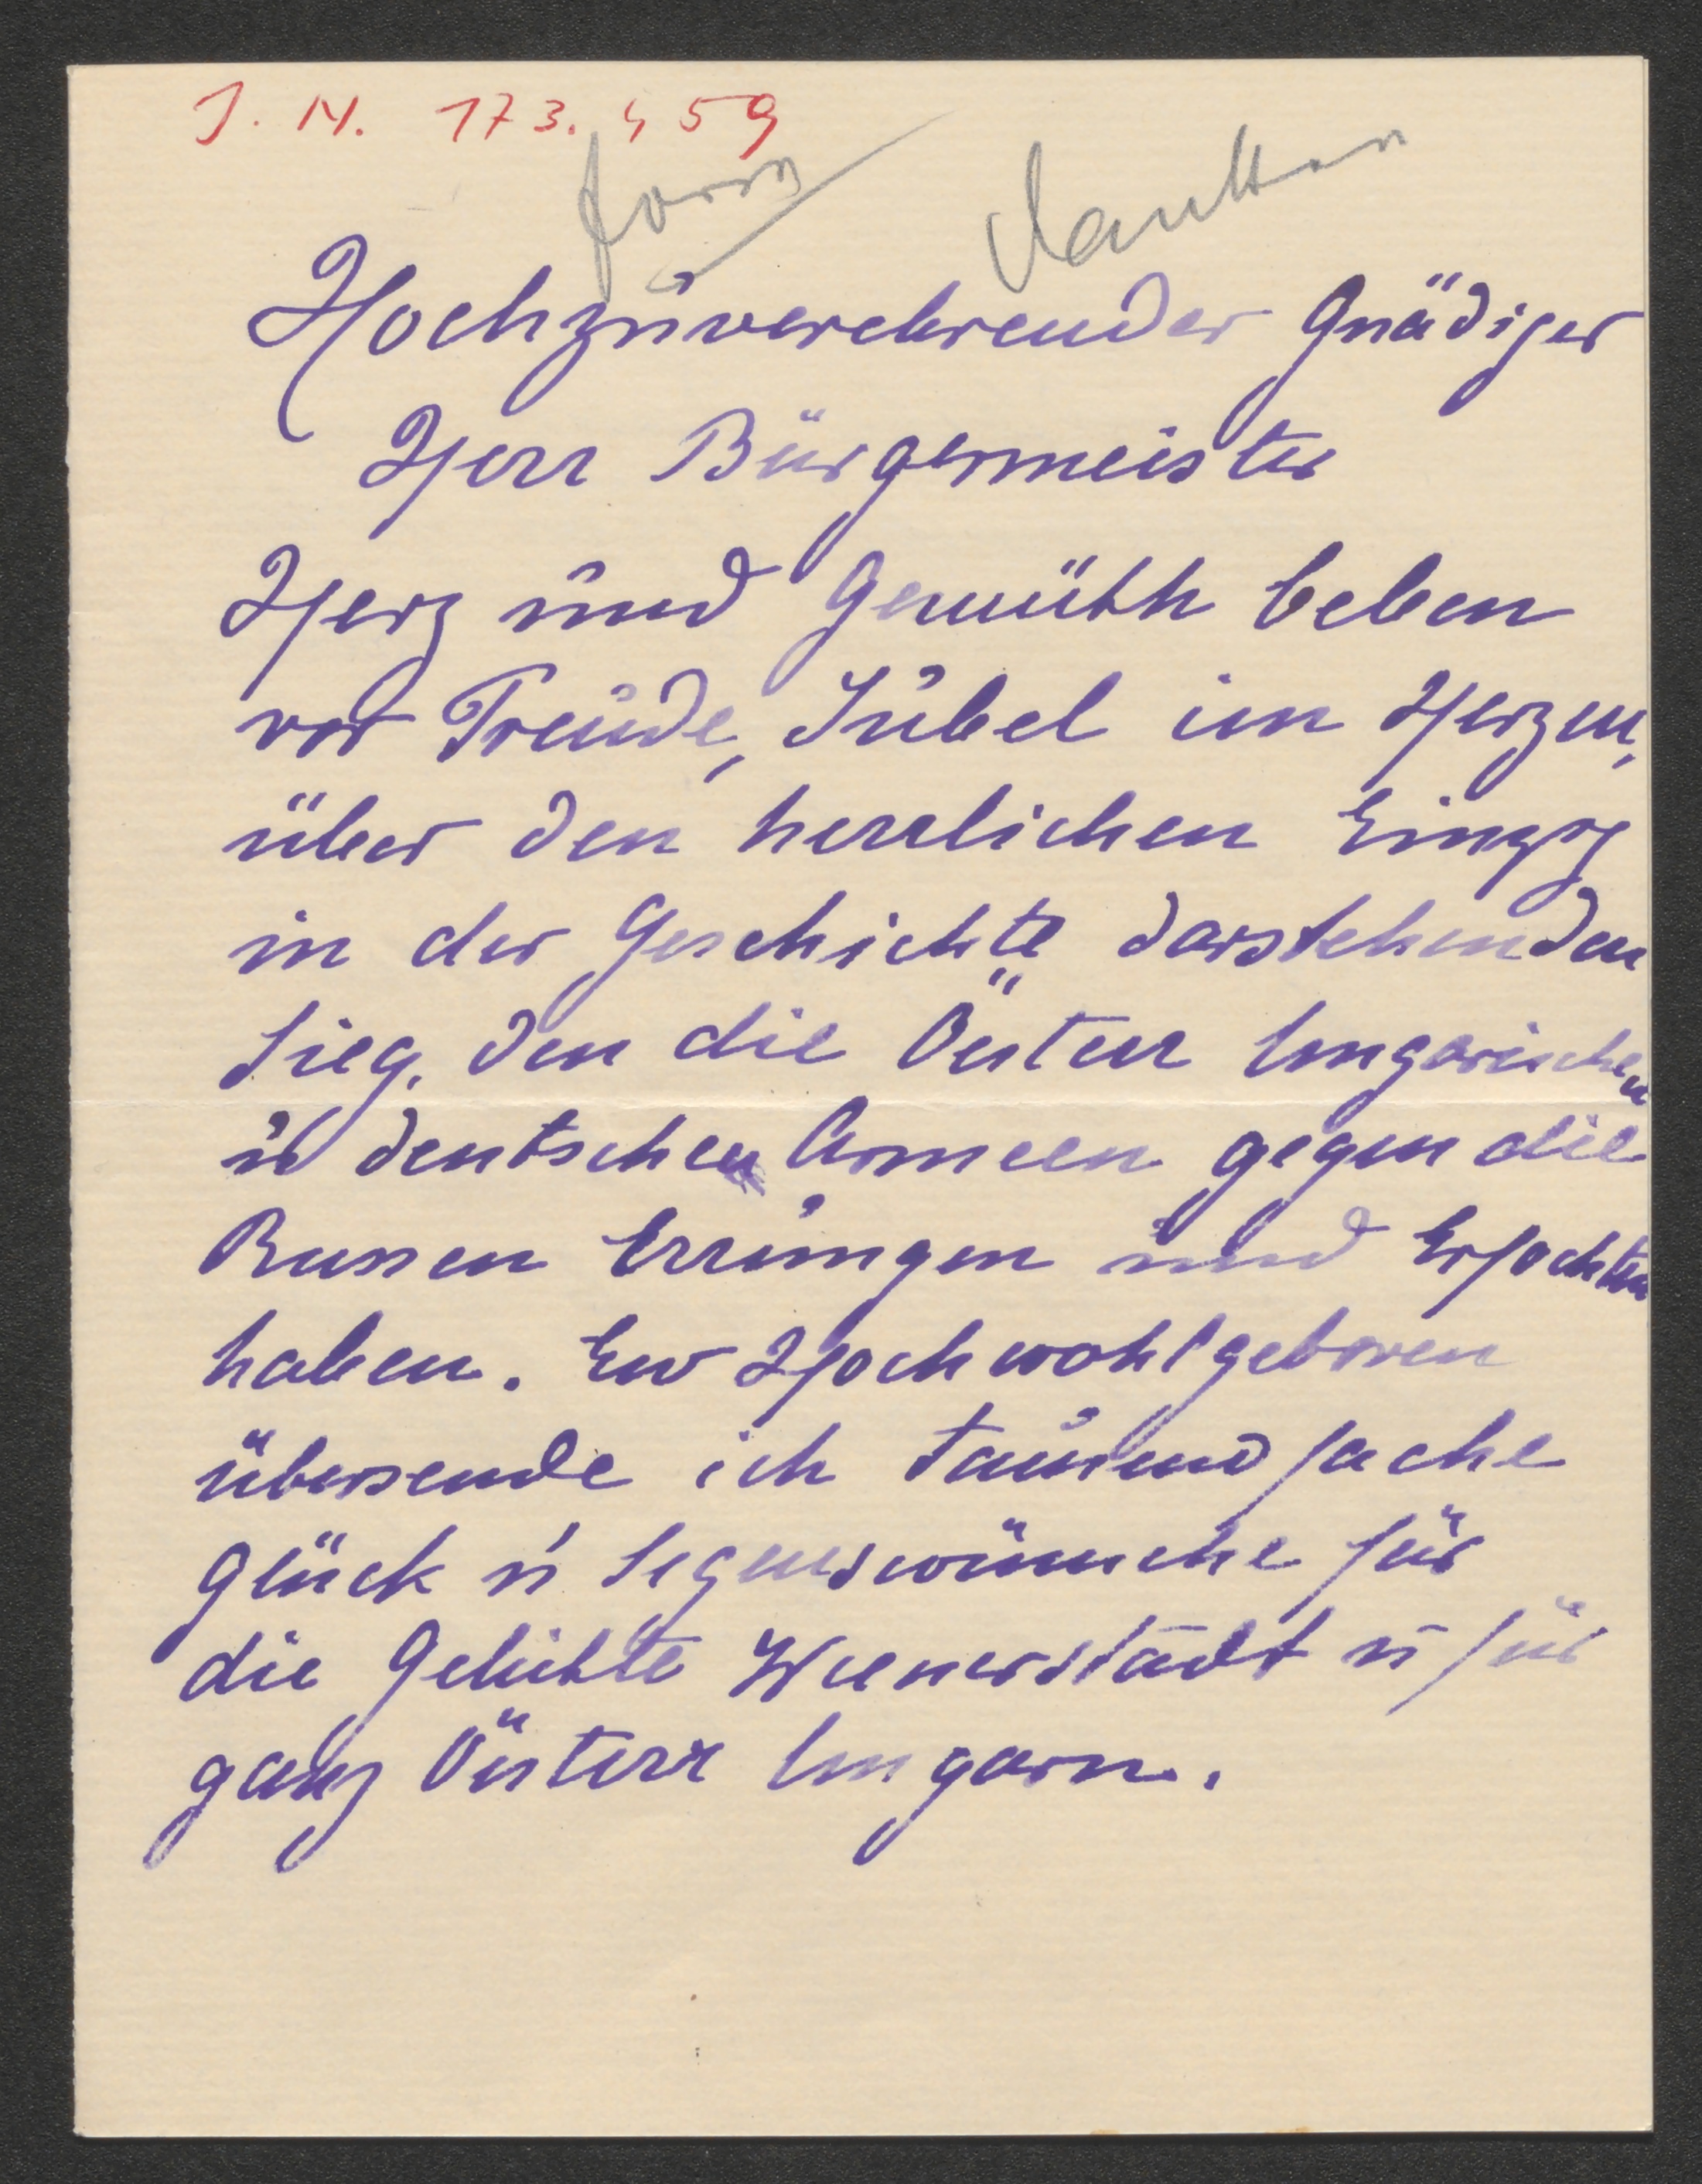 J. N. 173.459
danken
Hochzuverehrender Gnädiger
Herr Bürgermeister
Herz und Gemüth beben
vor Freude, Jubel im Herzen,
über den herrlichen Einzig
in der Geschichte darstehenden
Sieg, den die Österr Ungarischen
u deutschen Armeen gegen die
Russen Errungen und Erfochten
haben. Euer Hochwohlgeboren
übersende ich tausendfache
Glück u Segenswünsche für
die Geliebte Wienerstadt u für
ganz Österr Ungarn.